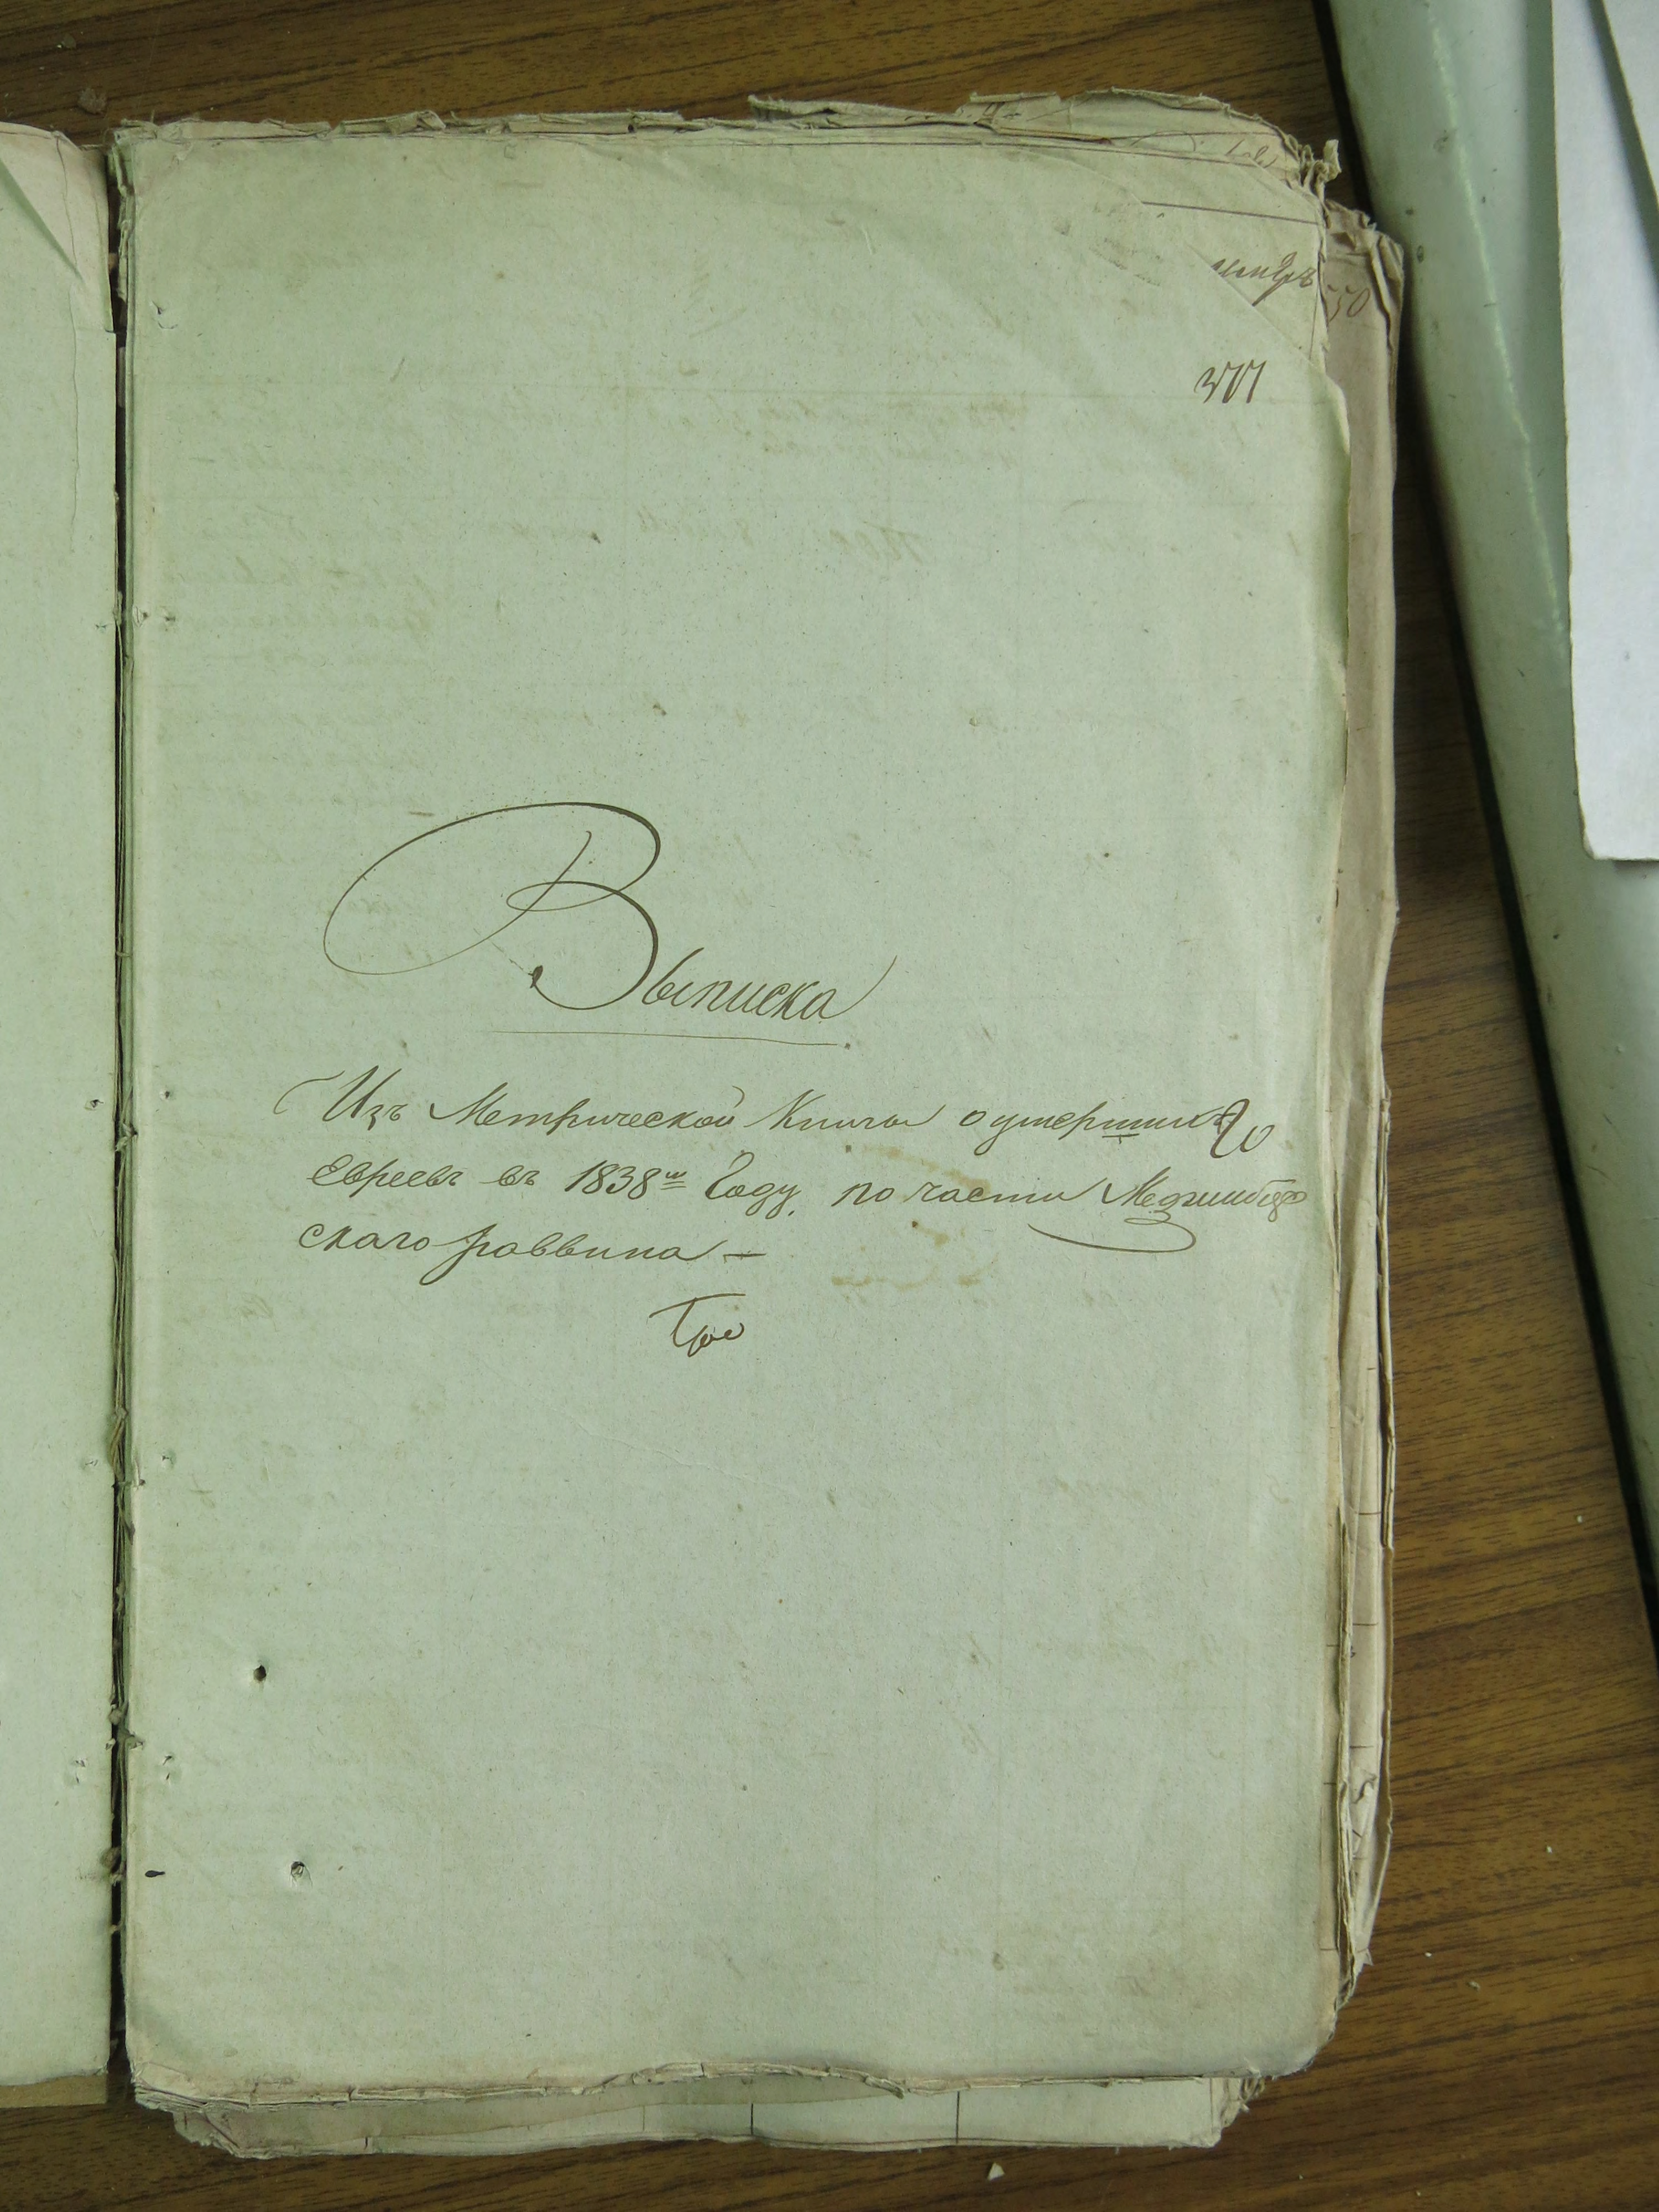 377
Выписка
Изъ Метрической Книги о умершихъ
Евреевъ въ 1838м Году, по части Меджибож
скаго раввина —